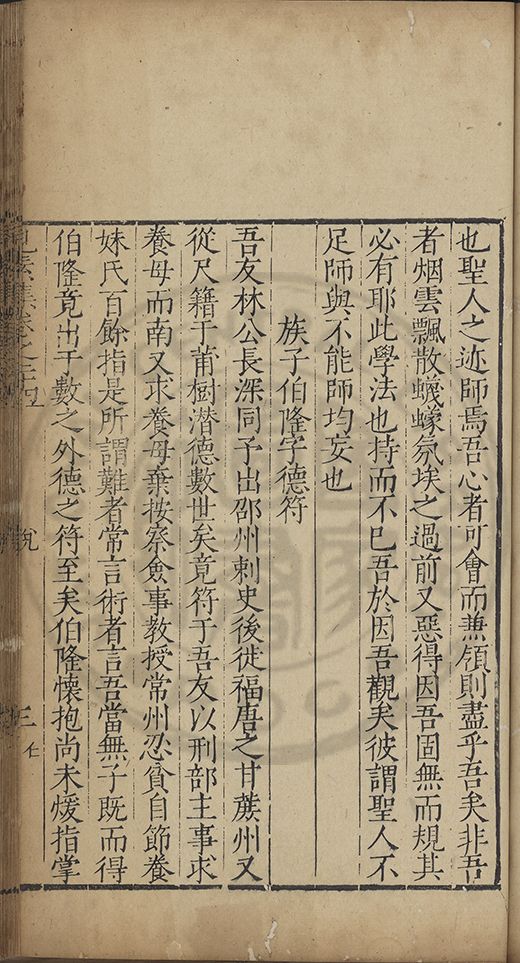 也聖人之迹師焉吾心者可會而兼領則盡乎吾矣非吾
者烟雲飄散蠛蠓氛埃之過前又惡得因吾固無而規其
必有耶此學法也持而不已吾於因吾觀矣彼謂聖人不
足師與不能師均妄也
族子伯隆字德符
吾友林公長深同予出邵州刺史後徙福唐之甘蔗州又
從尺籍于莆樹潛德數世矣竟符于吾友以刑部主事求
養母而南又求養母棄按察僉事教授常州忍貧自節養
妹氏百餘指是所謂難者常言術者言吾當無子既而得
伯隆竟出于數之外德之符至矣伯隆懷抱尚未煖指掌
集卷之二十四
說
三